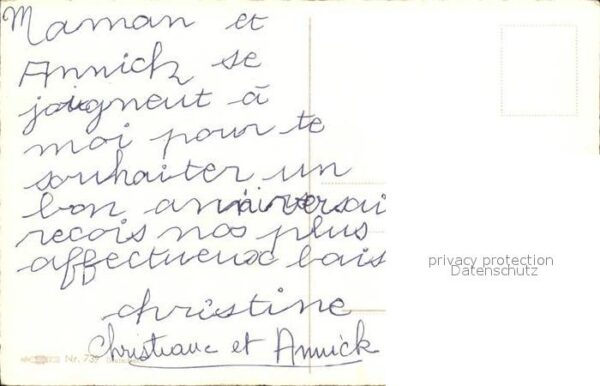 Maman et
Annick se
joignent à
moi pour te
souhaiter un
bon anniversai
recois nos plus
affectueux bais
christine
Christiane et Annick
Nr. 739
privacy protection
Datenschutz